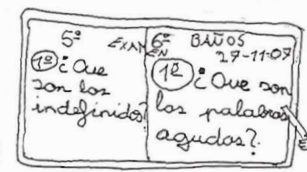 5º EXAMEN
1º ¿Que
son los
indefinidos?
6º BAÑOS
27-11-07
1º ¿Que son
las palabras
agudas?